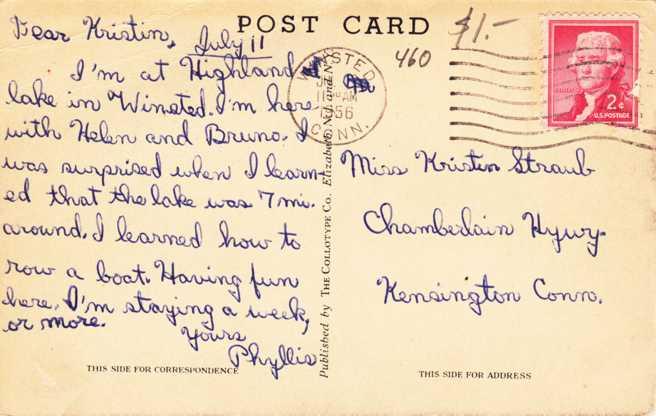 POST CARD
$1.-
460
Dear Kristin,
July 11
I'm at Highland
lake in Winsted. I'm here
with Helen and Bruno. I
was surprised when I learn-
ed that the lake was 7 mi.
around. I learned how to
row a boat. Having fun
here. I'm staying a week,
or more.
Yours
Phyllis
THIS SIDE FOR CORRESPONDENCE
Published by THE COLLOTYPE CO., Elizabeth, N.J. and N.Y.
WINSTED
AM
1956
CONN.
2¢
U.S. POSTAGE
Miss Kristin Straub
Chamberlain Hywy.
Kensington Conn.
THIS SIDE FOR ADDRESS